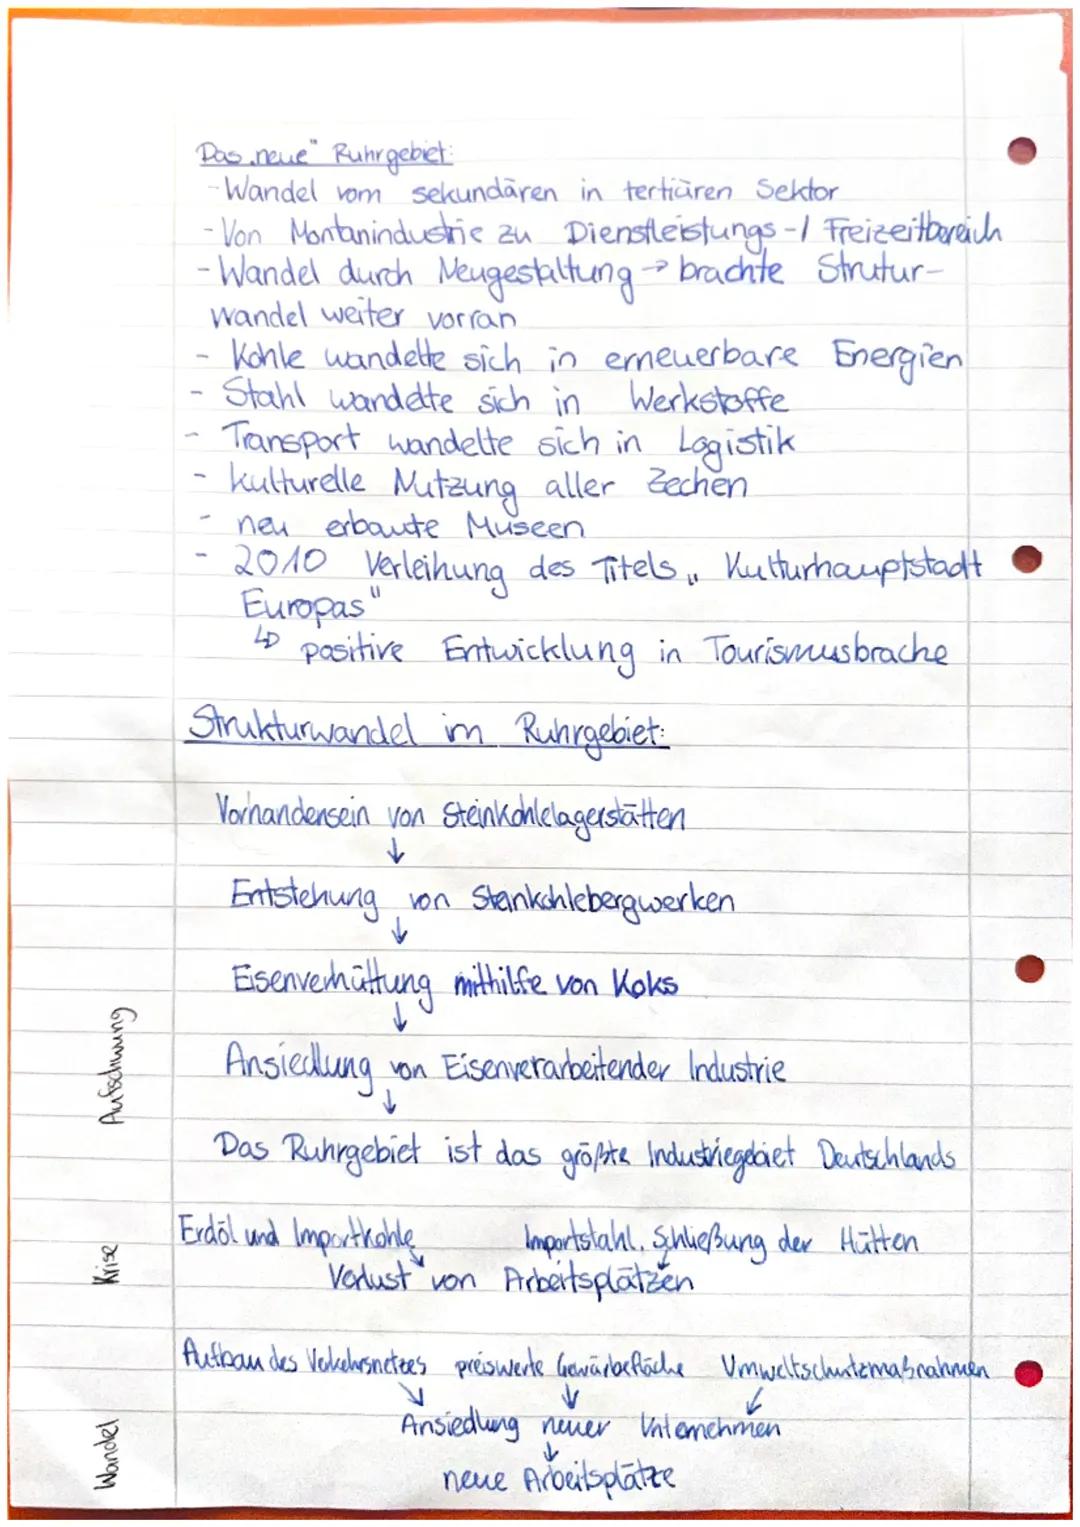 Das „neue" Ruhrgebiet:
- Wandel vom sekundären in tertiären Sektor
- Von Montanindustrie zu Dienstleistungs-/ Freizeitbereich
- Wandel durch Neugestaltung → brachte Strutur-
wandel weiter vorran
- Kohle wandelte sich in erneuerbare Energien
- Stahl wandelte sich in Werkstoffe
- Transport wandelte sich in Logistik
- kulturelle Nutzung aller Zechen
- neu erbaute Museen
- 2010 Verleihung des Titels „Kulturhauptstadt
Europas"
↳ positive Entwicklung in Tourismusbrache
Strukturwandel im Ruhrgebiet:
Vorhandensein von Steinkohlelagerstätten
↓
Entstehung von Steinkohlebergwerken
↓
Eisenverhüttung mithilfe von Koks
↓
Aufschwung
Ansiedlung von Eisenverarbeitender Industrie
↓
Das Ruhrgebiet ist das größte Industriegebiet Deutschlands
Krise
Erdöl und Importkohle Importstahl, Schließung der Hütten
↘ ↙
Verlust von Arbeitsplätzen
Wandel
Aufbau des Verkehrsnetzes preiswerte Gewärbefläche Umweltschutzmaßnahmen
↘ ↓ ↙
Ansiedlung neuer Unternehmen
↓
neue Arbeitsplätze